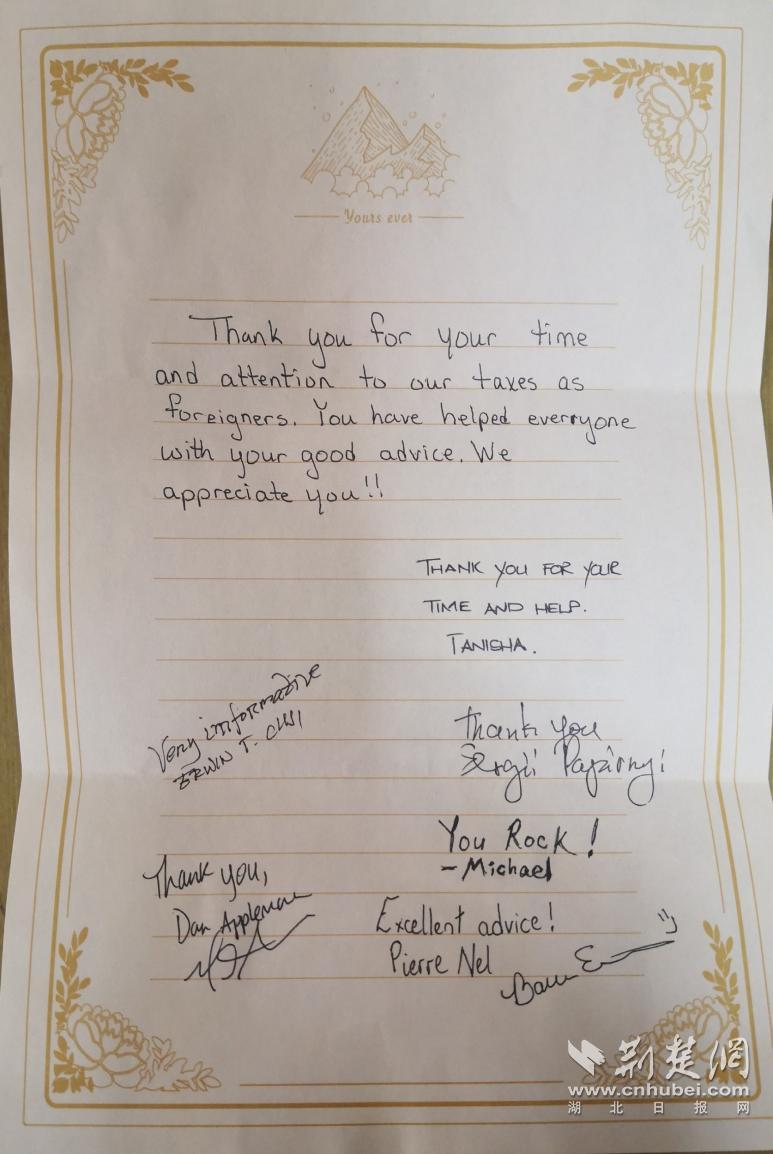 Yours ever
Thank you for your time
and attention to our taxes as
foreigners. You have helped everryone
with your good advice. We
appreciate you!!
THANK YOU FOR YOUR
TIME AND HELP.
TANISHA.
Very informative
ERWIN T.
Thank you
You Rock!
- Michael
Thank you,
Dan Appleman
Excellent advice!
Pierre Nel
荆楚网
www.cnhubei.com
湖北日报网